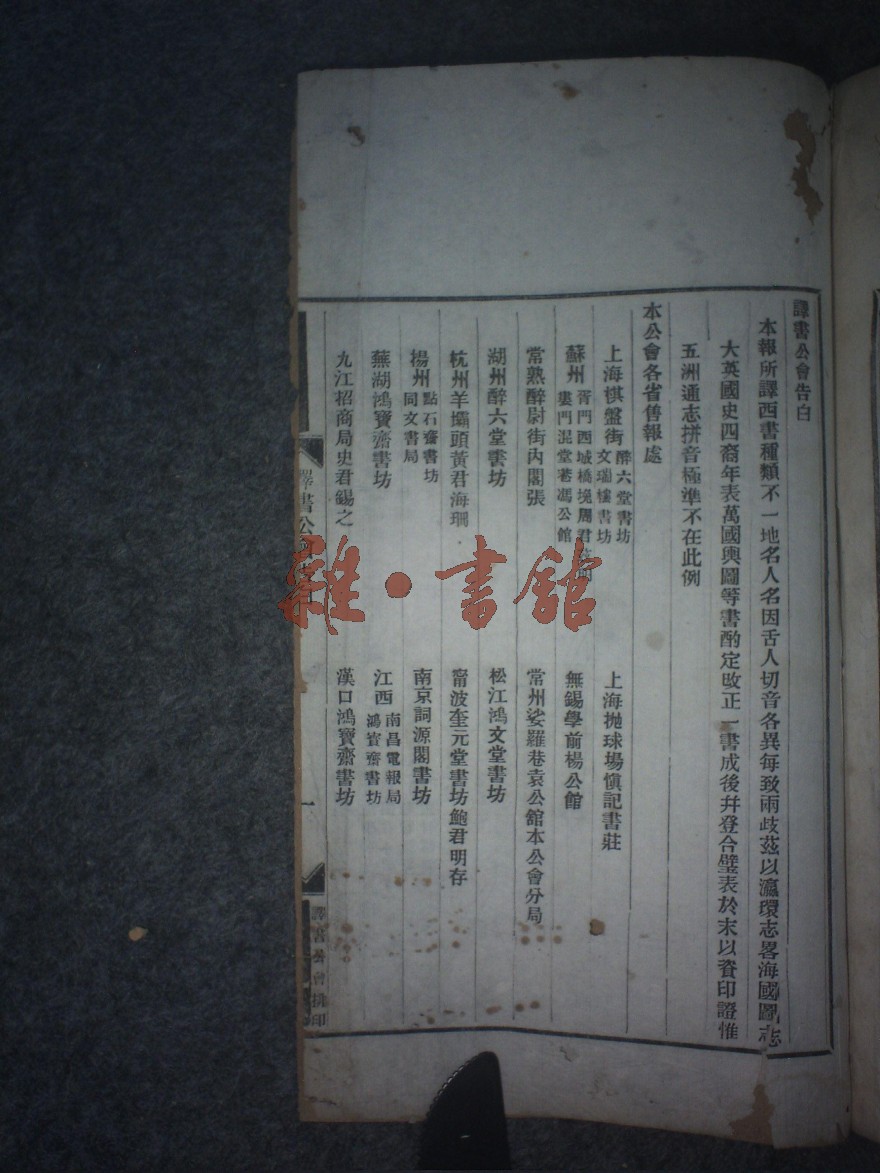 譯書公會告白
本報所譯西書種類不一地名人名因舌人切音各異每致兩歧茲以瀛環志畧海國圖志
大英國史四裔年表萬國輿圖等書酌定改正一書成後幷登合璧表於末以資印證惟
五洲通志拼音極準不在此例
本公會各省售報處
上海棋盤街 醉六堂書坊 文瑞樓書坊
上海拋球場慎記書莊
蘇州 胥門西城橋堍周君 婁門混堂巷馮公館
無錫學前楊公館
常熟醉尉街內閣張
常州娑羅巷袁公館本公會分局
湖州醉六堂書坊
松江鴻文堂書坊
杭州羊壩頭黃君海珊
甯波奎元堂書坊鮑君明存
揚州 點石齋書坊 同文書局
南京詞源閣書坊
蕪湖鴻寶齋書坊
江西 南昌電報局 鴻寶齋書坊
九江招商局史君錫之
漢口鴻寶齋書坊
譯書公會
一
譯書公會排印
雜·書館